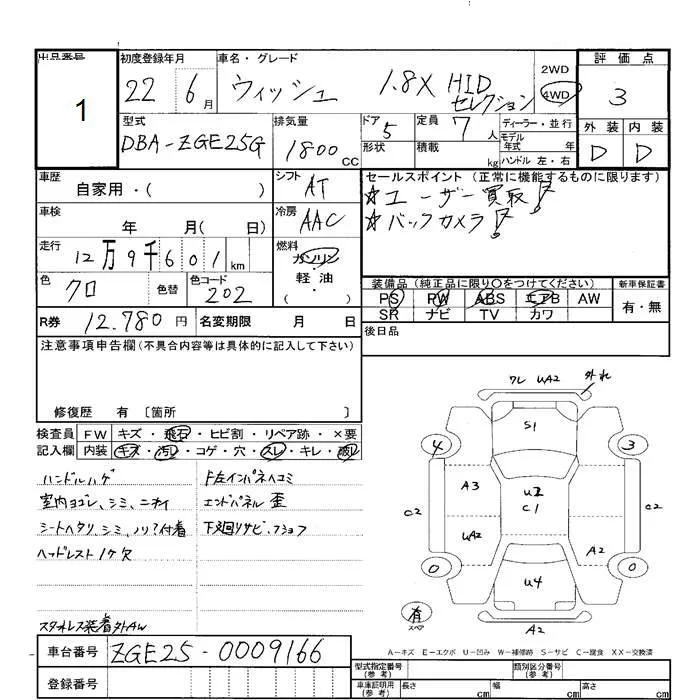 出品番号
1
初度登録年月
22 6月
車名・グレード
ウィッシュ 1.8X HID セレクション
2WD
4WD
評価点
3
型式
DBA-ZGE25G
排気量
1800cc
ドア
5
形状
定員
7人
積載 kg
ディーラー・並行
モデル年式 年
ハンドル 左・右
外装 内装
D D
車歴
自家用・( )
シフト
AT
車検
年 月( 日)
冷房
AAC
走行
12万9千601km
燃料
ガソリン・軽油・( )
色
クロ
色替
色コード
202
R券 12.780円
名変期限 月 日
セールスポイント(正常に機能するものに限ります)
☆ユーザー買取!
☆バックカメラ!
装備品(純正品に限り○をつけてください)
新車保証書
PS PW ABS エアB AW
SR ナビ TV カワ
有・無
後日品
注意事項申告欄(不具合内容等は具体的に記入して下さい)
修復歴 有〔箇所 〕
検査員記入欄
FW キズ・飛石・ヒビ割・リペア跡・×要
内装 キズ・汚レ・コゲ・穴・スレ・キレ・破レ
ハンドルハゲ
室内ヨゴレ、シミ、ニオイ
シートヘタリ、シミ、ノリ?付着
ヘッドレスト1ケ欠
スタットレス装着外AW
F左インパネヘコミ
エンドパネル歪
下廻りサビ、フショク
ワレ UA2 外れ
S1
4 3
A3
U2
C1
C2 C2
UA2
A2
0 0
U4
有
スペア
A2
A-キズ E-エクボ U-凹み W-補修跡 S-サビ C-腐食 XX-交換済
車台番号 ZGE25-0009166
登録番号
型式指定番号(参考)
類別区分番号(参考)
車庫証明用(参考) 長さ cm 幅 cm 高さ cm